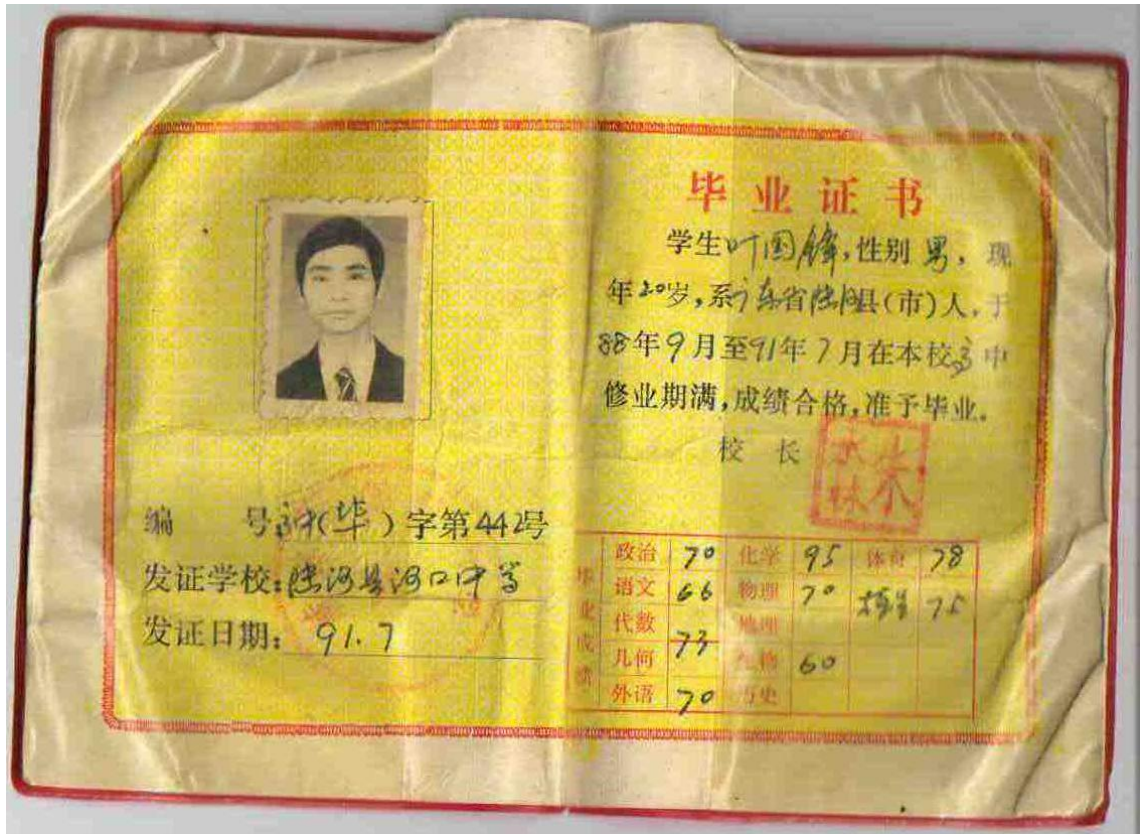 毕业证书
学生叶国锋,性别男,现
年20岁,系广东省陆河县(市)人,于
88年9月至91年7月在本校高中
修业期满,成绩合格,准予毕业。
校 长
编 号 (毕)字第442号
发证学校:陆河县河口中学
发证日期:91.7
毕业成绩
政治 70 化学 95 体育 78
语文 66 物理 70 75
代数 73 地理
几何 生物 60
外语 70 历史